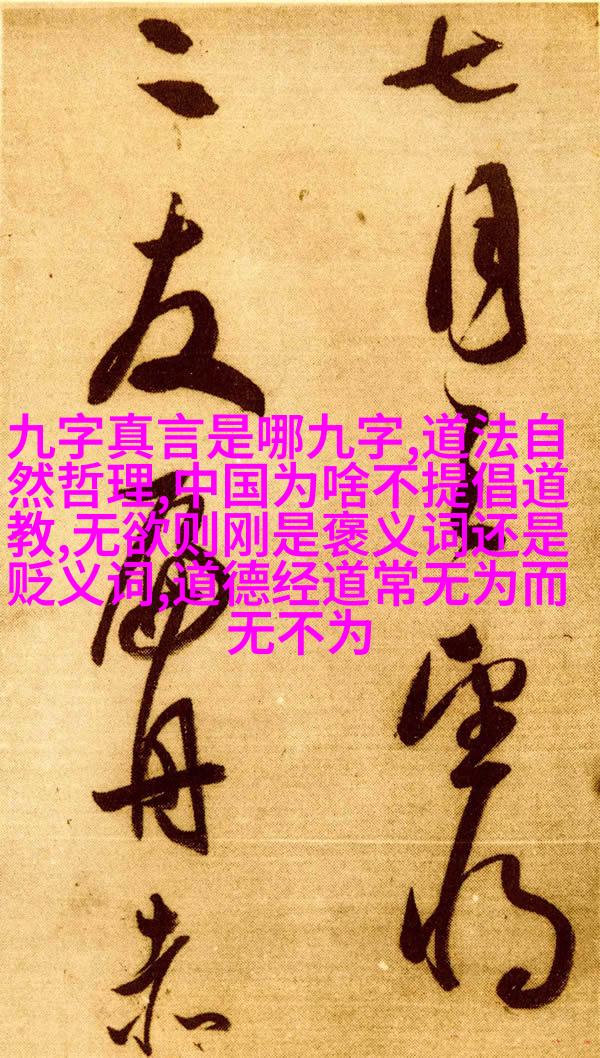 七月望将
二友舟赤
九字真言是哪九字,道法自
然哲理,中国为啥不提倡道
教,无欲则刚是褒义词还是
贬义词,道德经道常无为而
无不为